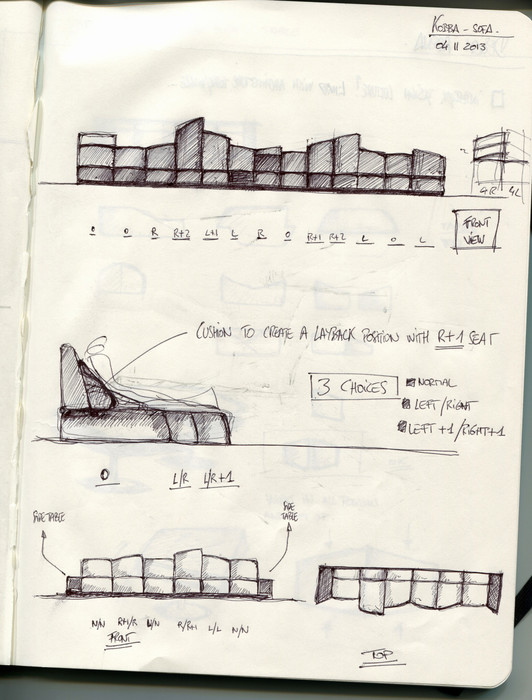 KOSBA - SOFA -
04 11 2013
4R 4L
0 0 R R+2 L+1 L R 0 R+1 R+2 L 0 L
FRONT
VIEW
CUSHION TO CREATE A LAYBACK POSITION WITH R+1 SEAT
3 CHOICES
NORMAL
LEFT/RIGHT
LEFT+1/RIGHT+1
0 L/R L/R+1
SIDE TABLE
SIDE
TABLE
N/N R+1/R N/N R/R+1 L/L N/N
FRONT
TOP